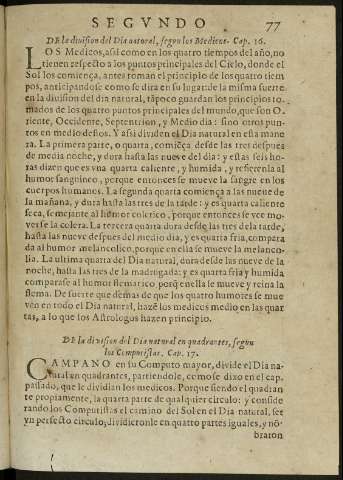 SEGVNDO 77
DE la diuision del Dia natural, segun los Medicos. Cap. 16.
LOS Medicos, assi como en los quatro tiempos del año, no
tienen respecto a los puntos principales del Cielo, donde el
Sol los comiença, antes toman el principio de los quatro tiem
pos, anticipandose como se dira en su lugar: de la misma suerte
en la diuision del dia natural, tãpoco guardan los principios to-
mados de los quatro puntos principales del mundo, que son O-
riente, Occidente, Septentrion, y Medio dia: sino otros pun-
tos en medio destos. Y assi diuiden el Dia natural en esta mane
ra. La primera parte, o quarta, comiẽça desde las tres despues
de media noche, y dura hasta las nueue del dia: y estas seis ho-
ras dizen que es vna quarta caliente, y humida, y refierenla al
humor sanguineo, porque entonces se mueue la sangre en los
cuerpos humanos. La segunda quarta comiença a las nueue de
la mañana, y dura hasta las tres de la tarde: y es quarta caliente
seca, semejante al humor colerico, porque entonces se vee mo-
uerse la colera. La tercera quarta dura desde las tres de la tarde,
hasta las nueue despues del medio dia, y es quarta fria, compara
da al humor melancolico, porque en ella se mueue la melanco-
lia. La vltima quarta del Dia natural, dura desde las nueue de la
noche, hasta las tres de la madrugada: y es quarta fria y humida
comparase al humor flematico, porq̃ en ella se mueue y reina la
flema. De suerte que demas de que los quatro humores se mue
vẽn en todo el Dia natural, hazẽ los medicos medio en las quar
tas, a lo que los Astrologos hazen principio.
DE la diuision del Dia natural en quadrantes, segun
los Computistas. Cap. 17.
CAMPANO en su Computo mayor, diuide el Dia na-
tural en quadrantes, partiendole, como se dixo en el cap.
passado, que le diuidian los medicos. Porque siendo el quadran
te propiamente, la quarta parte de qualquier circulo: y conside
rando los Computistas el camino del Sol en el Dia natural, ser
vn perfecto circulo, diuidieronle en quatro partes iguales, y nõ-
braron